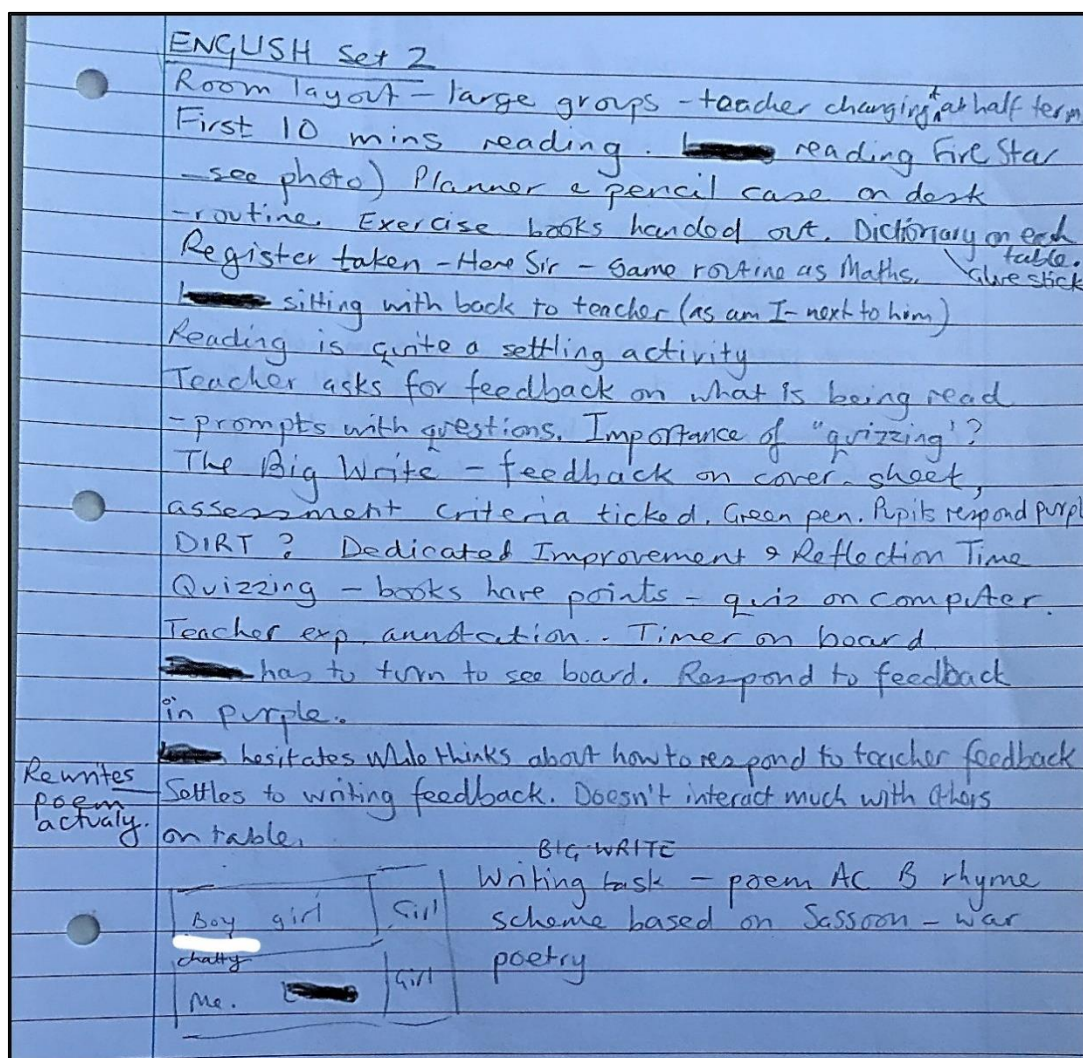 ENGLISH Set 2
Room layout - large groups - teacher changing at half term
First 10 mins reading. reading Fire Star
- see photo) Planner & pencil case on desk
- routine. Exercise books handed out. Dictionary on each table.
Register taken - Here Sir - Same routine as Maths. Glue stick
sitting with back to teacher (as am I - next to him)
Reading is quite a settling activity
Teacher asks for feedback on what is being read
- prompts with questions. Importance of "quizzing"?
The Big Write - feedback on cover sheet,
assessment criteria ticked. Green pen. Pupils respond purpl
DIRT? Dedicated Improvement & Reflection Time
Quizzing - books have points - quiz on computer.
Teacher exp annotation. Timer on board
has to turn to see board. Respond to feedback
in purple.
hesitates while thinks about how to respond to teacher feedback
Rewrites poem actualy.
Settles to writing feedback. Doesn't interact much with others
on table.
BIG WRITE
Writing task - poem AC B rhyme
scheme based on Sassoon - war
poetry
Boy girl Girl
chatty
Me. Girl